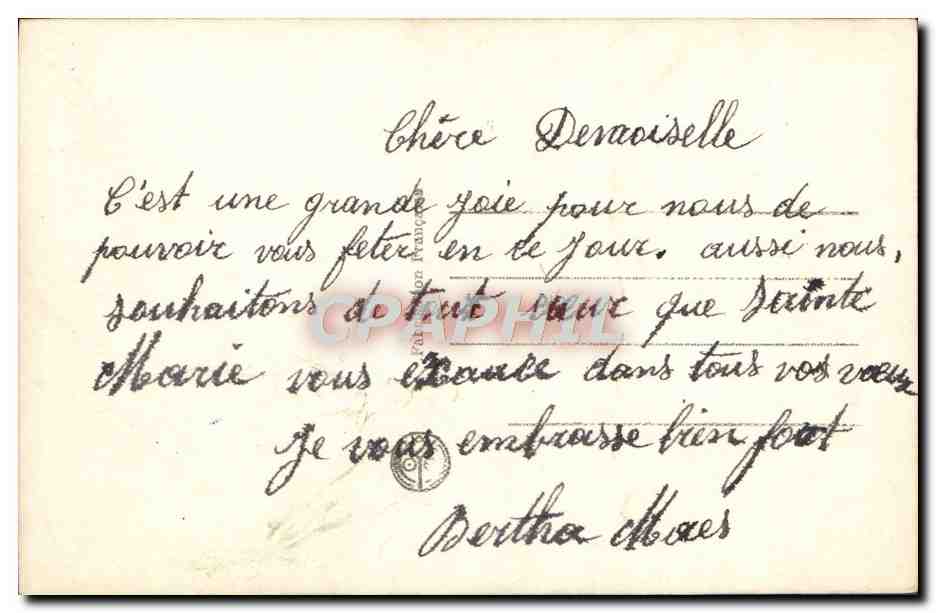 Chère Demoiselle
C'est une grande joie pour nous de
pouvoir vous feter en ce jour. aussi nous,
souhaitons de tout cœur que Sainte
Marie vous exauce dans tous vos vœux
Je vous embrasse bien fort
Bertha Maes
Fabrication Française
CPAPHIL